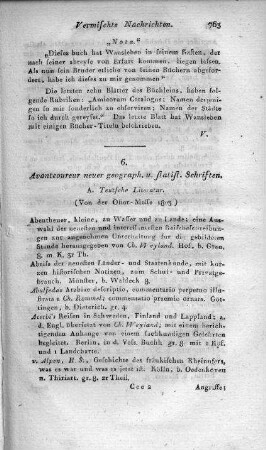 Vermischte Nachrichten. 763
„Nota."
„Dieses buch hat Wansleben in seinem Kasten, der
nach seiner abreyse von Erfurt kommen, liegen lassen.
Als nun sein Bruder etliche von seinen Büchern abgefor-
dert, habe ich dieses zu mir genommen"
Die letzten zehn Blätter des Büchleins, haben fol-
gende Rubriken: „Amicorum Catalogus; Namen derjeni-
gen so mir sonderlich an
In ich durch gereyset." Das letzte Blatt hat Wansleben
mit einigen Bücher-Titeln beschrieben.
V.
6.
neuer geograph. u. statist. Schriften.
A. Teutsche Literatur.
(Von der Oster-Messe 1803)
Abentheuer, kleine, zu Wasser und zu Lande; eine Aus-
wahl der neuesten und interessantesten Reisebeschreibungen
und angenehmen Unterhaltung für die gebildeten
Stände herausgegeben von Ch. Weyland. Hof, b. Grau,
8. m K. 5r Th.
Abriss der neuesten Länder- und Staatenkunde, mit kur-
zen historischen Notizen, zum Schul- und Privatge-
brauch. Münster, b. Waldeck 8.
Abulfedae Arabiae descriptio, commentario perpetuo il-
lustrata a Ch. Rommel; commentatio praemio ornata.
Göttingen, b. Dieterich. gr. 4.
Acerbi's Reisen in Schweden, Finland und Lappland; a.
d. Engl. übersetzt von Ch. Weyland; mit einem berichti-
genden Anhange von einem sachkundigen Gelehrten
begleitet. Berlin, in d. Voss. Buchh. gr. 8. mit Kpf.
u. 1 Landcharte.
v. Alpen, H. S., Geschichte des fränkischen Rheinufers,
was es war und was es jetzt ist. Kölln, b. Oedenkoven
u. Thiriart. gr. 8. 2r Theil.
Ccc 2